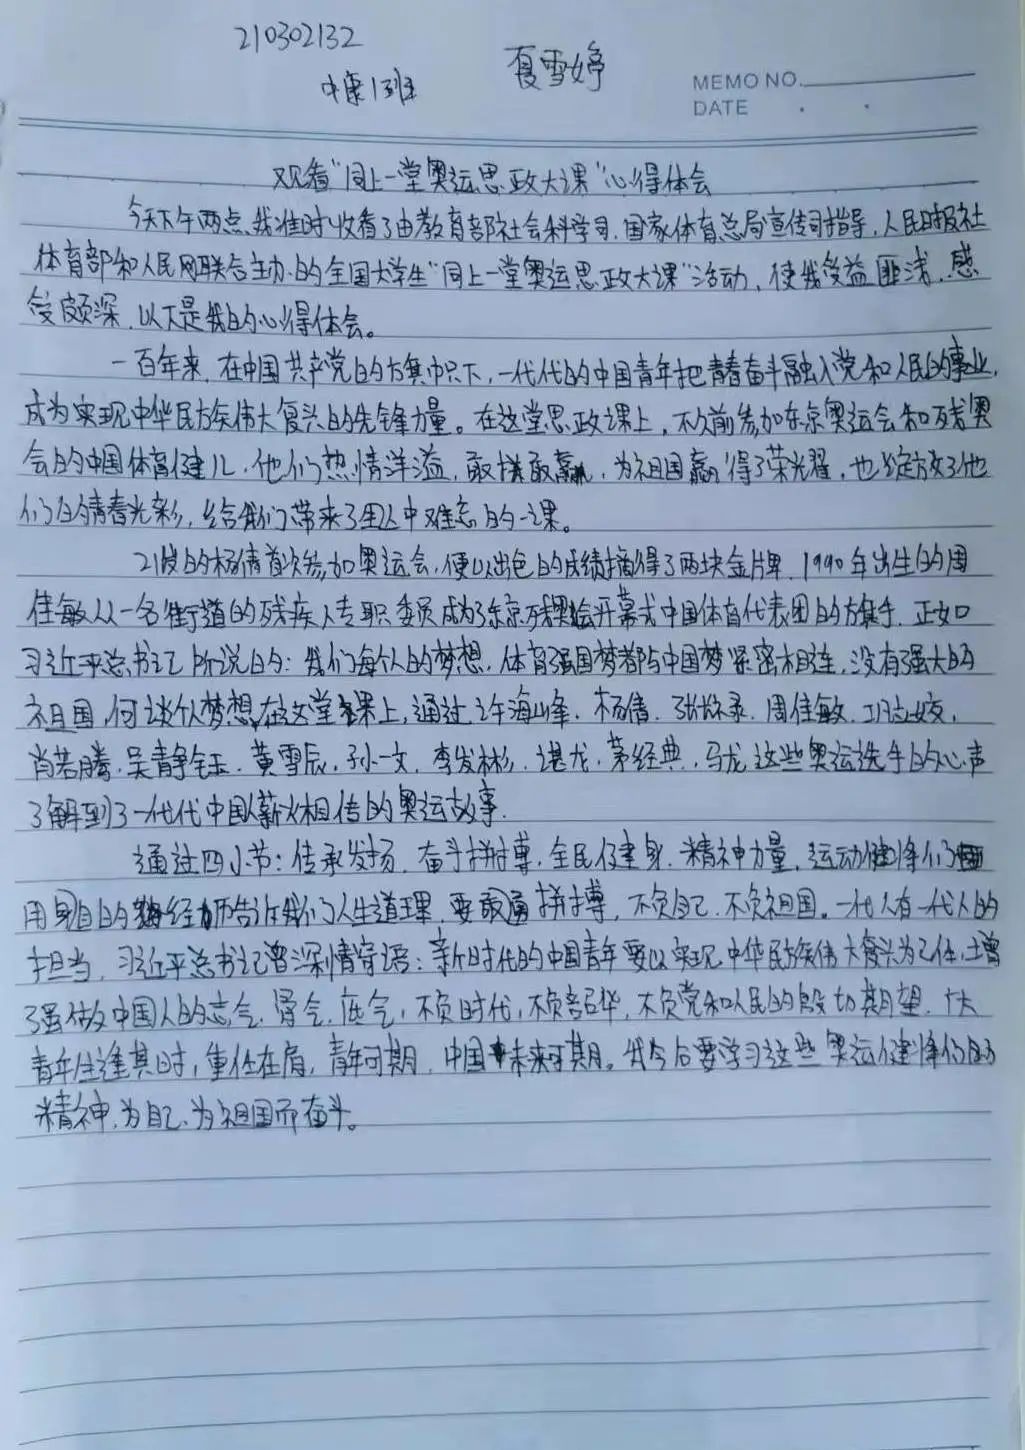 210302132
夏雪婷
中康1班
MEMO NO.
DATE
观看“同上一堂奥运思政大课”心得体会
今天下午两点,我准时收看了由教育部社会科学司、国家体育总局宣传司指导,人民日报社
体育部和人民网联合主办的全国大学生“同上一堂奥运思政大课”活动,使我受益匪浅,感
受颇深,以下是我的心得体会。
一百年来,在中国共产党的旗帜下,一代代的中国青年把青春奋斗融入党和人民的事业,
成为实现中华民族伟大复兴的先锋力量。在这堂思政课上,不久前参加东京奥运会和残奥
会的中国体育健儿,他们热情洋溢,敢拼敢赢,为祖国赢得了荣光耀,也绽放了他
们的青春光彩,给我们带来了团队中难忘的一课。
21岁的杨倩首次参加奥运会,便以出色的成绩摘得了两块金牌,1990年出生的周
佳敏从一名街道的残疾人专职委员成为了东京残奥会开幕式中国体育代表团的旗手,正如
习近平总书记所说的:我们每个人的梦想,体育强国梦都与中国梦紧密相连,没有强大的
祖国,何谈个人梦想,在这堂课上,通过许海峰、杨倩、张、周佳敏、巩立姣,
肖若腾、吴静钰、黄雪辰、孙一文、李发彬、谌龙、茅经典、马龙这些奥运选手的心声
了解到了一代代中国人薪火相传的奥运故事.
通过四小节:传承发扬,奋斗拼搏,全民健身,精神力量,运动健将们
用身自的经历告诉我们人生道理,要敢勇拼搏,不负自己,不负祖国。一代人有一代人的
担当,习近平总书记曾深情寄语:新时代的中国青年要以实现中华民族伟大复兴为己任,增
强做中国人的志气、骨气、底气,不负时代,不负韶华,不负党和人民的殷切期望,广大
青年生逢其时,重任在肩,青年可期,中国未来可期。我今后要学习这些奥运健将们的
精神,为自己、为祖国而奋斗。